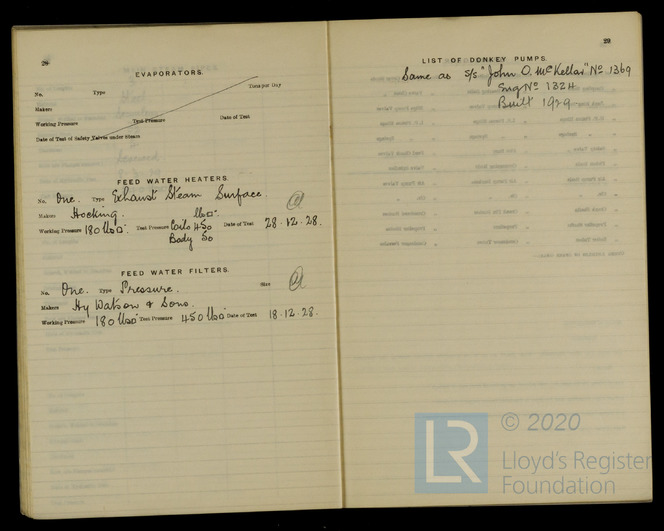 28
EVAPORATORS.
Tons per Day
No. Type
Makers
Working Pressure Test Pressure Date of Test
Date of Test of Safety Valves under Steam
FEED WATER HEATERS.
No. One. Type Exhaust Steam Surface
Makers Hocking. lbs□"
Working Pressure 180 lbs□" Test Pressure Coils 450 Date of Test 28.12.28.
Body 50
FEED WATER FILTERS.
No. One. Type Pressure. Size
Makers Hy Watson & Sons.
Working Pressure 180 lbs□" Test Pressure 450 lbs□" Date of Test 18.12.28.
29
LIST OF DONKEY PUMPS.
Same as S/S "John O. McKellar" No 1369
Eng No 1324
Built 1929
LR
© 2020
Lloyd's Register
Foundation